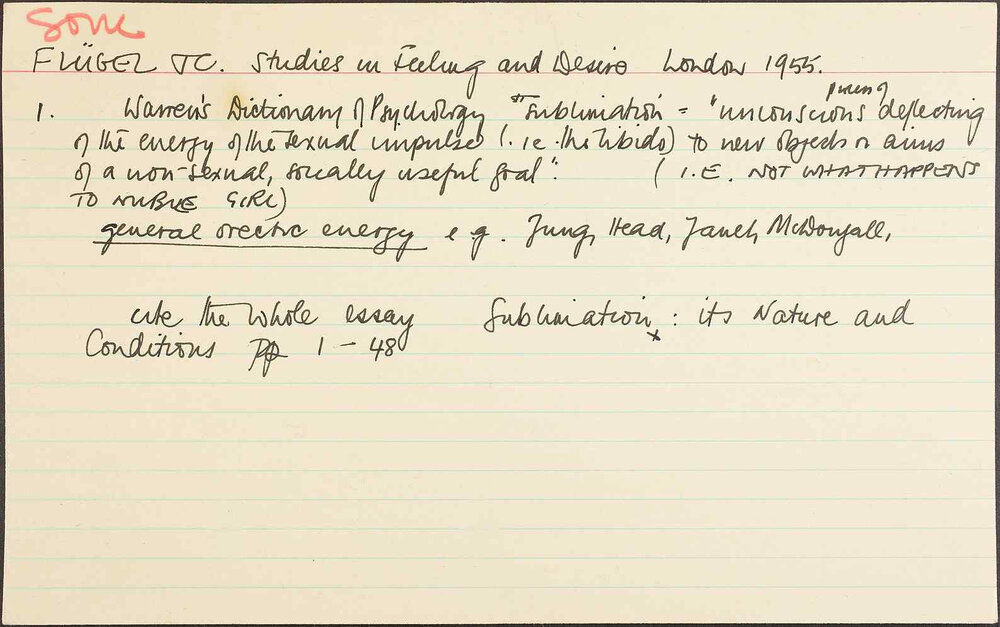 SOM
FLÜGEL JC. Studies in Feeling and Desire London 1955.
process of
1. Warren's Dictionary of Psychology "Sublimation = "unconscious deflecting
of the energy of the sexual impulse (i.e. the libido) to new objects or aims
of a non-sexual, socially useful goal". (I.E. NOT WHAT HAPPENS
TO NUBILE GIRL)
general orectic energy e.g. Jung, Head, Janet, McDougall,
cite the whole essay Sublimation x : its Nature and
Conditions pp 1 - 48